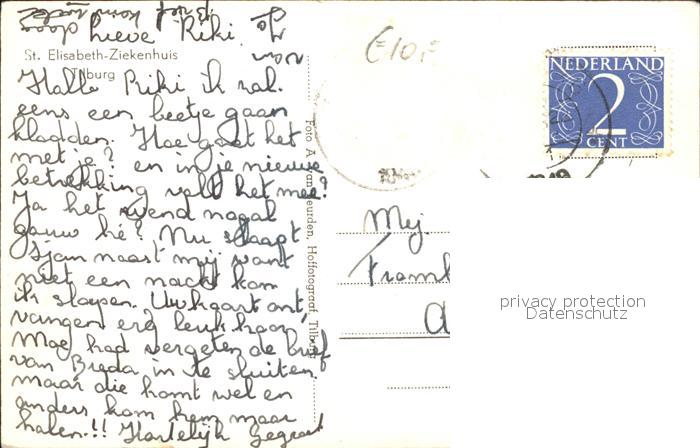 Lieve Riki.
St. Elisabeth-Ziekenhuis
Tilburg
Hallo Riki ik zal
eens een beetje gaan
kladden. Hoe gaat het
met je? en in je nieuwe
betrekking valt het mee?
Ja het wend nogal
gauw hé? Nu slaapt
Sjan naast mij want
niet een nacht kom
ik slapen. Uw kaart ont,
vangen erg leuk hoor,
Moe had vergeten de brief
van Breda in te sluiten.
maar die komt wel en
anders kom hem maar
halen.!! Hartelijk gegroet
Foto A. van Beurden, Hoffotograaf, Tilburg
€10,-
NEDERLAND
2
CENT
Mej.
privacy protection
Datenschutz